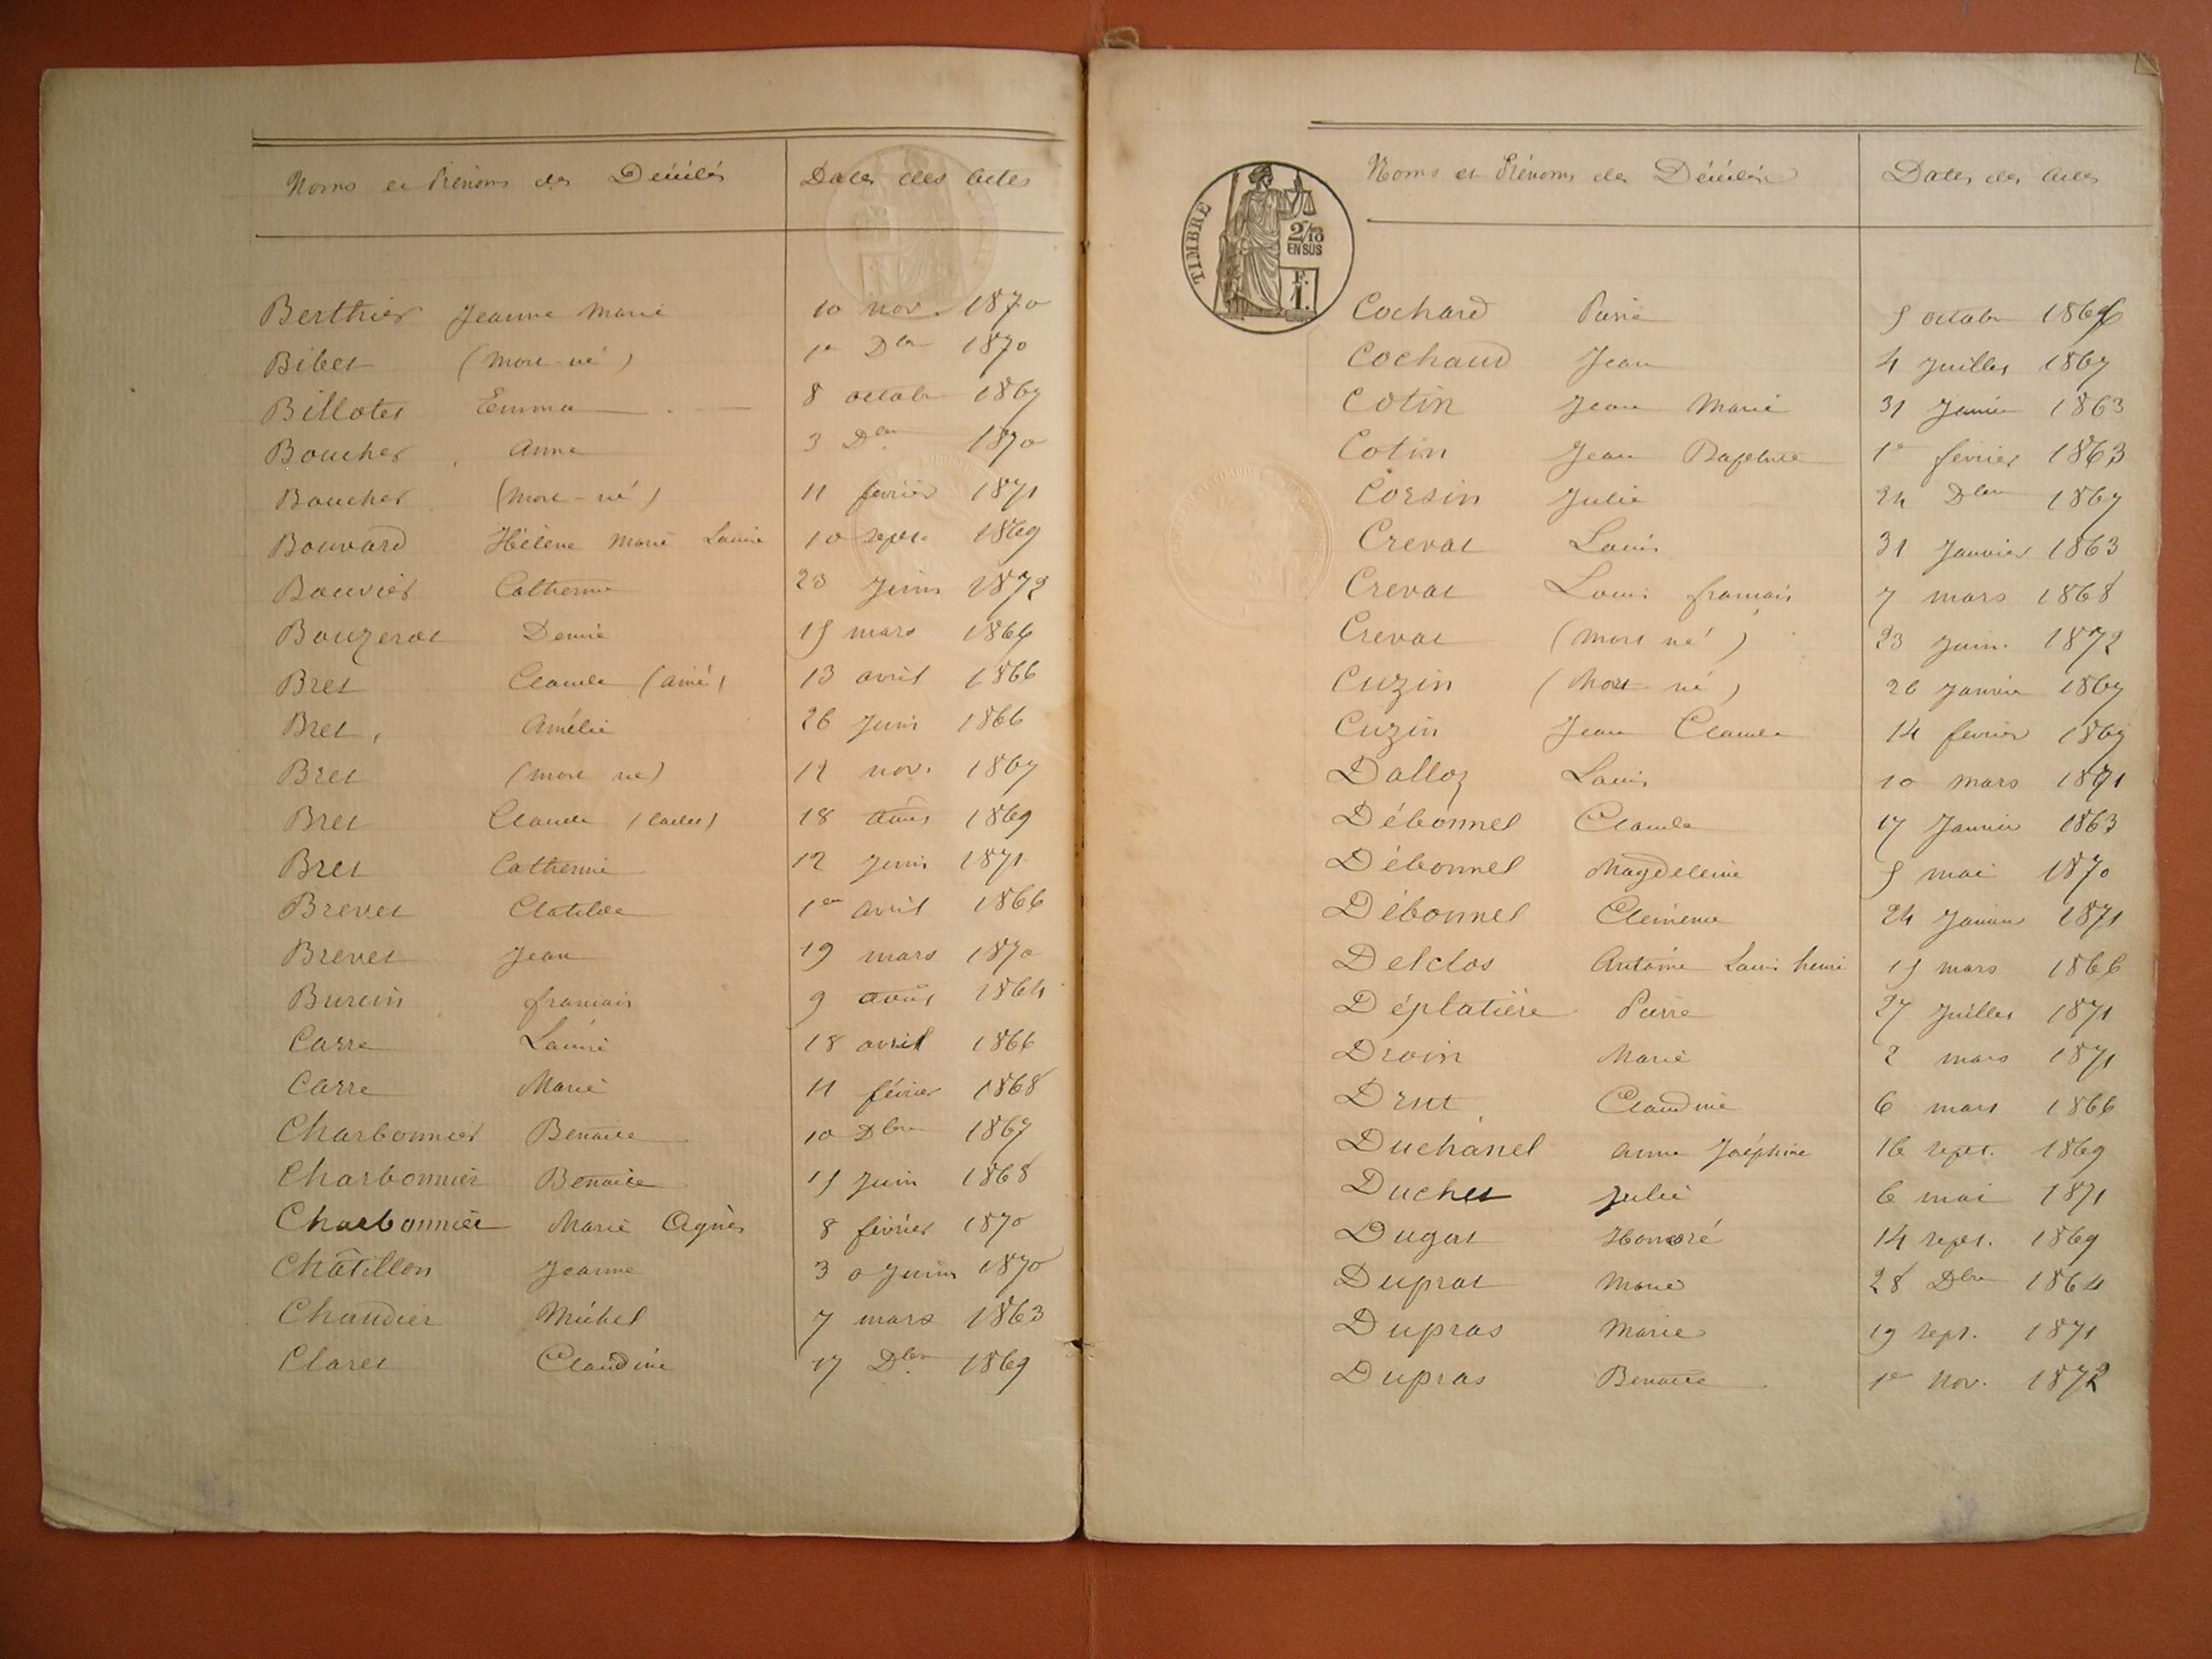 Noms et Prénoms des Décédés Dates des Actes
Berthier Jeanne Marie 10 nov. 1870
Bibet (mort-né) 1er Dbre 1870
Billotet Emma 8 octobre 1867
Boucher Anne 3 Dbre 1870
Boucher (mort-né) 11 février 1871
Bouvard Hélène Marie Louise 10 sept. 1869
Bouvier Catherine 23 Juin 1872
Bouzerot Denise 15 mars
Bret Claude (ainé) 13 avril 1866
Bret Amélie 26 Juin 1866
Bret (mort né) 12 nov. 1867
Bret Claude (cadet) 18 août 1869
Bret Catherine 12 Juin 1871
Brevet Clotilde 1er avril 1866
Brevet Jean 19 mars 1870
françois 9 août 1864
Carre Louise 18 avril 1866
Carre Marie 11 février 1868
Charbonnier Benoite 10 Dbre 1867
Charbonnier Benoite 15 Juin 1868
Charbonnier Marie Agnès 8 février 1870
Châtillon Jeanne 30 Juin 1870
Chaudier Michel 7 mars 1863
Claret Claudine 17 Dbre 1869
TIMBRE
2/10
EN SUS
F.
1.
Noms et Prénoms des Décédés Dates des Actes
Cochard Pierre 5 octobre
Cochard Jean 4 Juillet 1867
Cotin Jean Marie 31 Janvier 1863
Cotin Jean Baptiste 1er février 1863
Corsin Julie 24 Dbre 1867
Crevat Louis 31 Janvier 1863
Crevat Louis françois 7 mars 1868
Crevat (mort né) 23 Juin. 1872
Cuzin (Mort né) 26 Janvier 1867
Cuzin Jean Claude 14 février
Dalloz Louis 10 mars 1871
Débonnel Claude 17 Janvier 1863
Débonnel Magdeleine 5 mai 1870
Débonnel Clémence 24 Janvier 1871
Delclos Antoine Louis henri 15 mars 1866
Déplatière Pierre 27 Juillet 1871
Droin Marie 2 mars 1871
Drut Claudine 6 mars 1866
Duchanel Anne Joséphine 16 sept. 1869
Duchet Julie 6 mai 1871
Dugat Honoré 14 sept. 1869
Duprat Marie 28 Dbre 1864
Dupras Marie 19 sept. 1871
Dupras Benoite 1er Nov. 1872